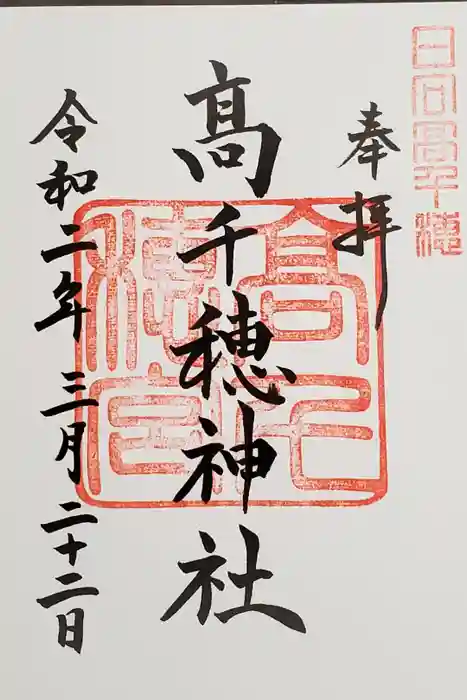 日向高千穂
奉拝
髙千穂神社
高千穂宮
令和二年三月二十二日